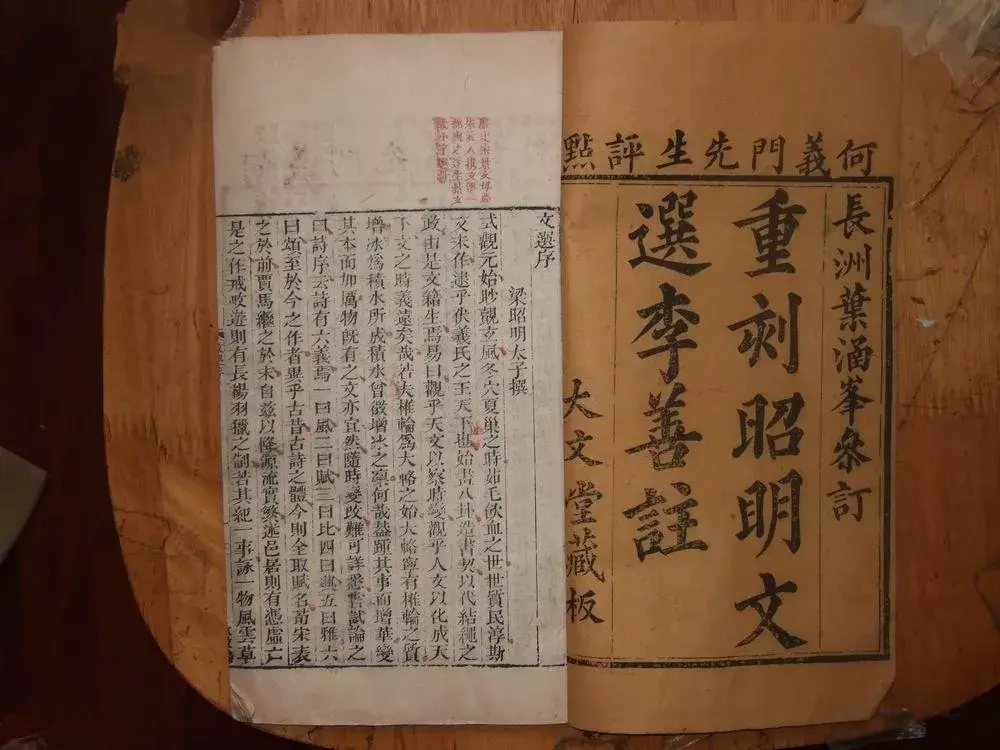 何義門先生評點
長洲葉涵峯叅訂
重刻昭明文
選李善註
大文堂藏板
文選序
梁昭明太子撰
式觀元始眇覿玄風冬穴夏巢之時茹毛飲血之世世質民淳斯
文未作逮乎伏羲氏之王天下也始畫八卦造書契以代結繩之
政由是文籍生焉易曰觀乎天文以察時變觀乎人文以化成天
下文之時義遠矣哉若夫椎輪為大輅之始大輅寧有椎輪之質
增冰為積水所成積水曾微增冰之凜何哉葢踵其事而增華變
其本而加厲物既有之文亦宜然隨時變改難可詳悉嘗試論之
曰詩序云詩有六義焉一曰風二曰賦三曰比四曰興五曰雅六
曰頌至於今之作者異乎古昔古詩之體今則全取賦名荀宋表
之於前賈馬繼之於末自兹以降源流實繁述邑居則有憑虛亡
是之作戒畋遊則有長楊羽獵之制若其紀一事詠一物風雲草